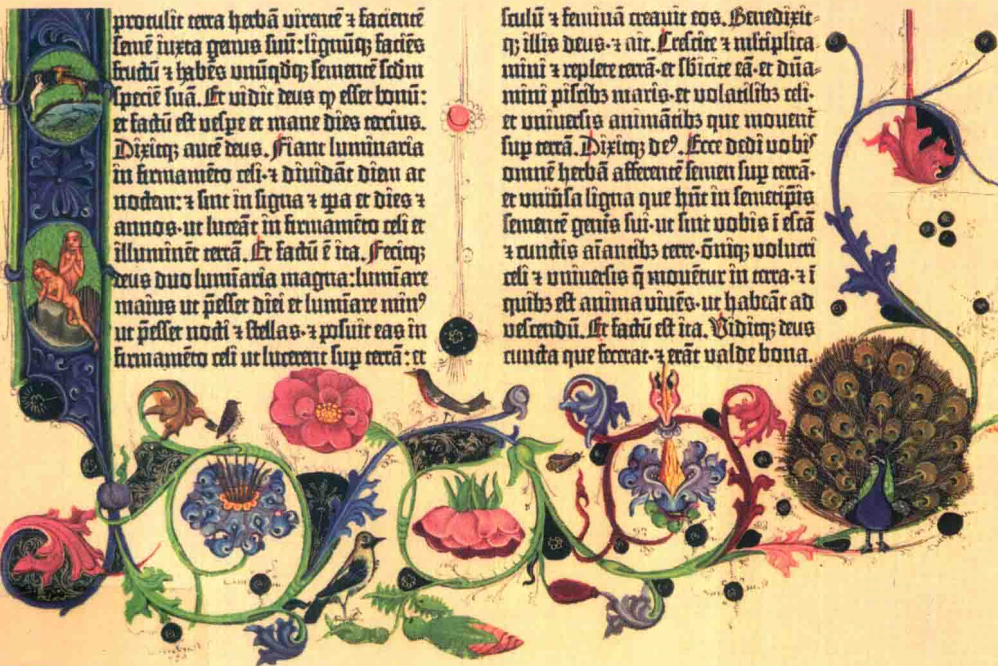 protulit terra herbā virentē ⁊ facientē
semē iuxta genus suū: lignūq; faciēs
fructū ⁊ habēs unūqdq; sementē scdm
speciē suā. Et vidit deus ꝙ esset bonū:
et factū est vespe et mane dies tercius.
Dixitq; autē deus. Fiant luminaria
in firmamēto celi · ⁊ dividāt diem ac
noctem: ⁊ sint in signa ⁊ tꝑa et dies ⁊
annos · ut luceāt in firmamēto celi et
illuminēt terrā. Et factū ē ita. Fecitq;
deus duo luminaria magna: lumīare
maius ut p̄esset diei et lumīare minꝰ
ut p̄esset nocti ⁊ stellas · ⁊ posuit eas in
firmamēto celi ut lucerent sup terrā: et
sculū ⁊ feminā creavit eos. Benedixit-
q; illis deus · ⁊ ait. Crescite ⁊ mltiplica
mini ⁊ replete terrā · et sbicite eā · et dn̄a-
mini piscibꝫ maris · et volatilibꝫ celi ·
et universis animātibꝫ que movent̄
sup terrā. Dixitq; deꝰ. Ecce dedi vobis
omnē herbā afferentē semen sup terrā ·
et univ̄sa ligna que hn̄t in semetip̄is
sementē genis sui · ut sint vobis ī escā
⁊ cunctis aīantibꝫ terre · ōniq; volucri
celi ⁊ universis q̄ moventur in terra · ⁊ ī
quibꝫ est anima vivēs · ut habeāt ad
vescendū. Et factū est ita. Viditq; deus
cuncta que fecerat · ⁊ erāt valde bona.